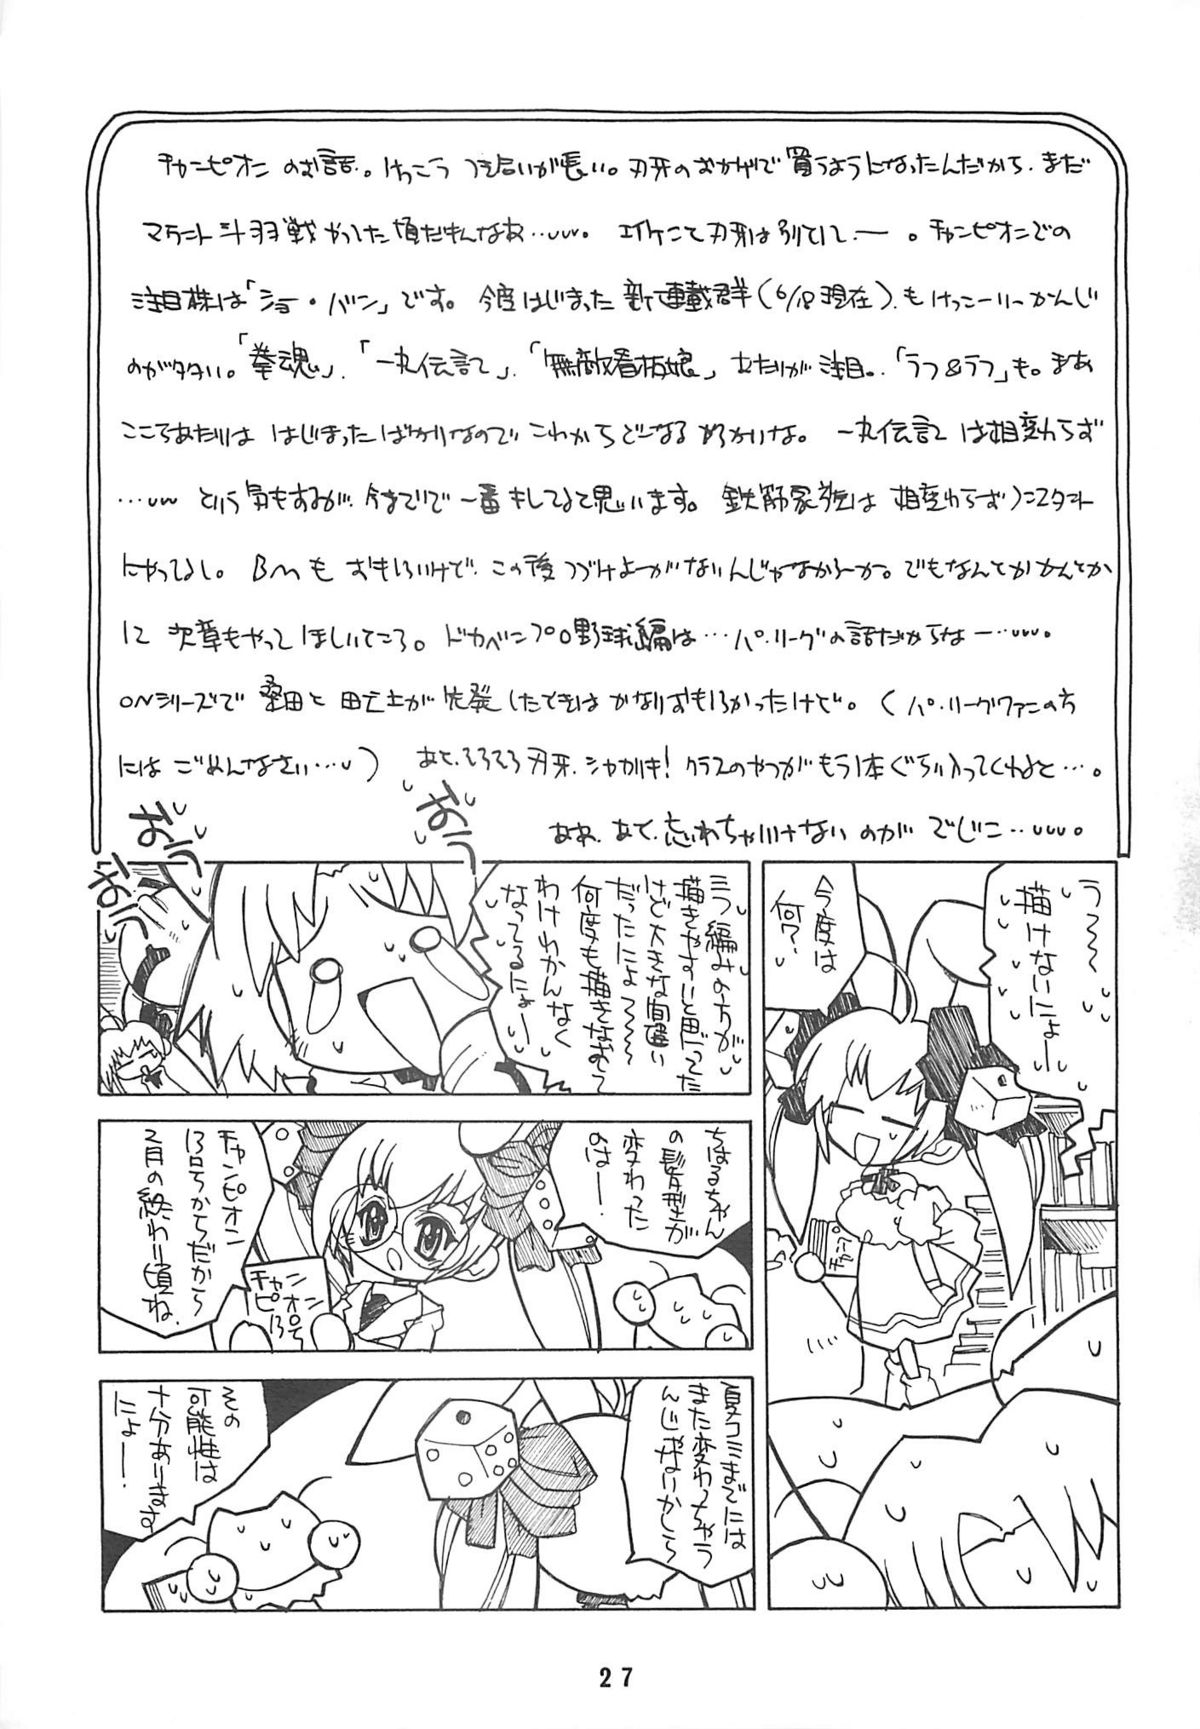 チャンピオンのお話。けっこうつき合いが長い。刃牙のおかげで買うようになったんだから、まだ
マウント斗羽戦やってた頃だもんなぁ…
注目株は「ショー・バン」です。今度はじまった新連載群(6/18現在)、もけっこーいーかんじ
のが多い。「拳魂」、「一丸伝記」、「無敵看板娘」あたりが注目。「ラフ&ラフ」も。まあ
ここらあたりははじまったばかりなのでこれからどーなるかいな。一丸伝記は相変わらず
…という気もするが、今までで一番キしてると思います。鉄筋家族は相変わらずコンスタント
にやってるし。BMもおもろいけど、この後つづけよーがないんじゃなかろーか。でもなんとかかんとか
に次章もやってほしいところ。ドカベンプロ野球編は…パ・リーグの話だからなー…。
ONシリーズで桑田とが先発したときはかなりおもろかったけど。(パ・リーグファンの方
にはごめんなさい…)あと、そろそろ刃牙、シャカリキ!クラスのやつがもう1本ぐらい入ってくれると…。
ああ、あと、忘れちゃいけないのがでじこ…。
うう～
描けないにょー
今度は
何?
三つ編みの方が
描きやすいと思ってた
けど大きな間違い
だったにょ～
何度も描きなおして
わけわかんなく
なってるにょー
おうっ
おうっ
おうっ
チャン
ちはるちゃん
の髪型が
変わった
のはー
チャンピオン
13号からだから
2月の終わり頃ね、
チャン
ピオン
13号
夏コミまでには
また変わっちゃう
んじゃないかしら
その
可能性は
十分あります
にょー
27